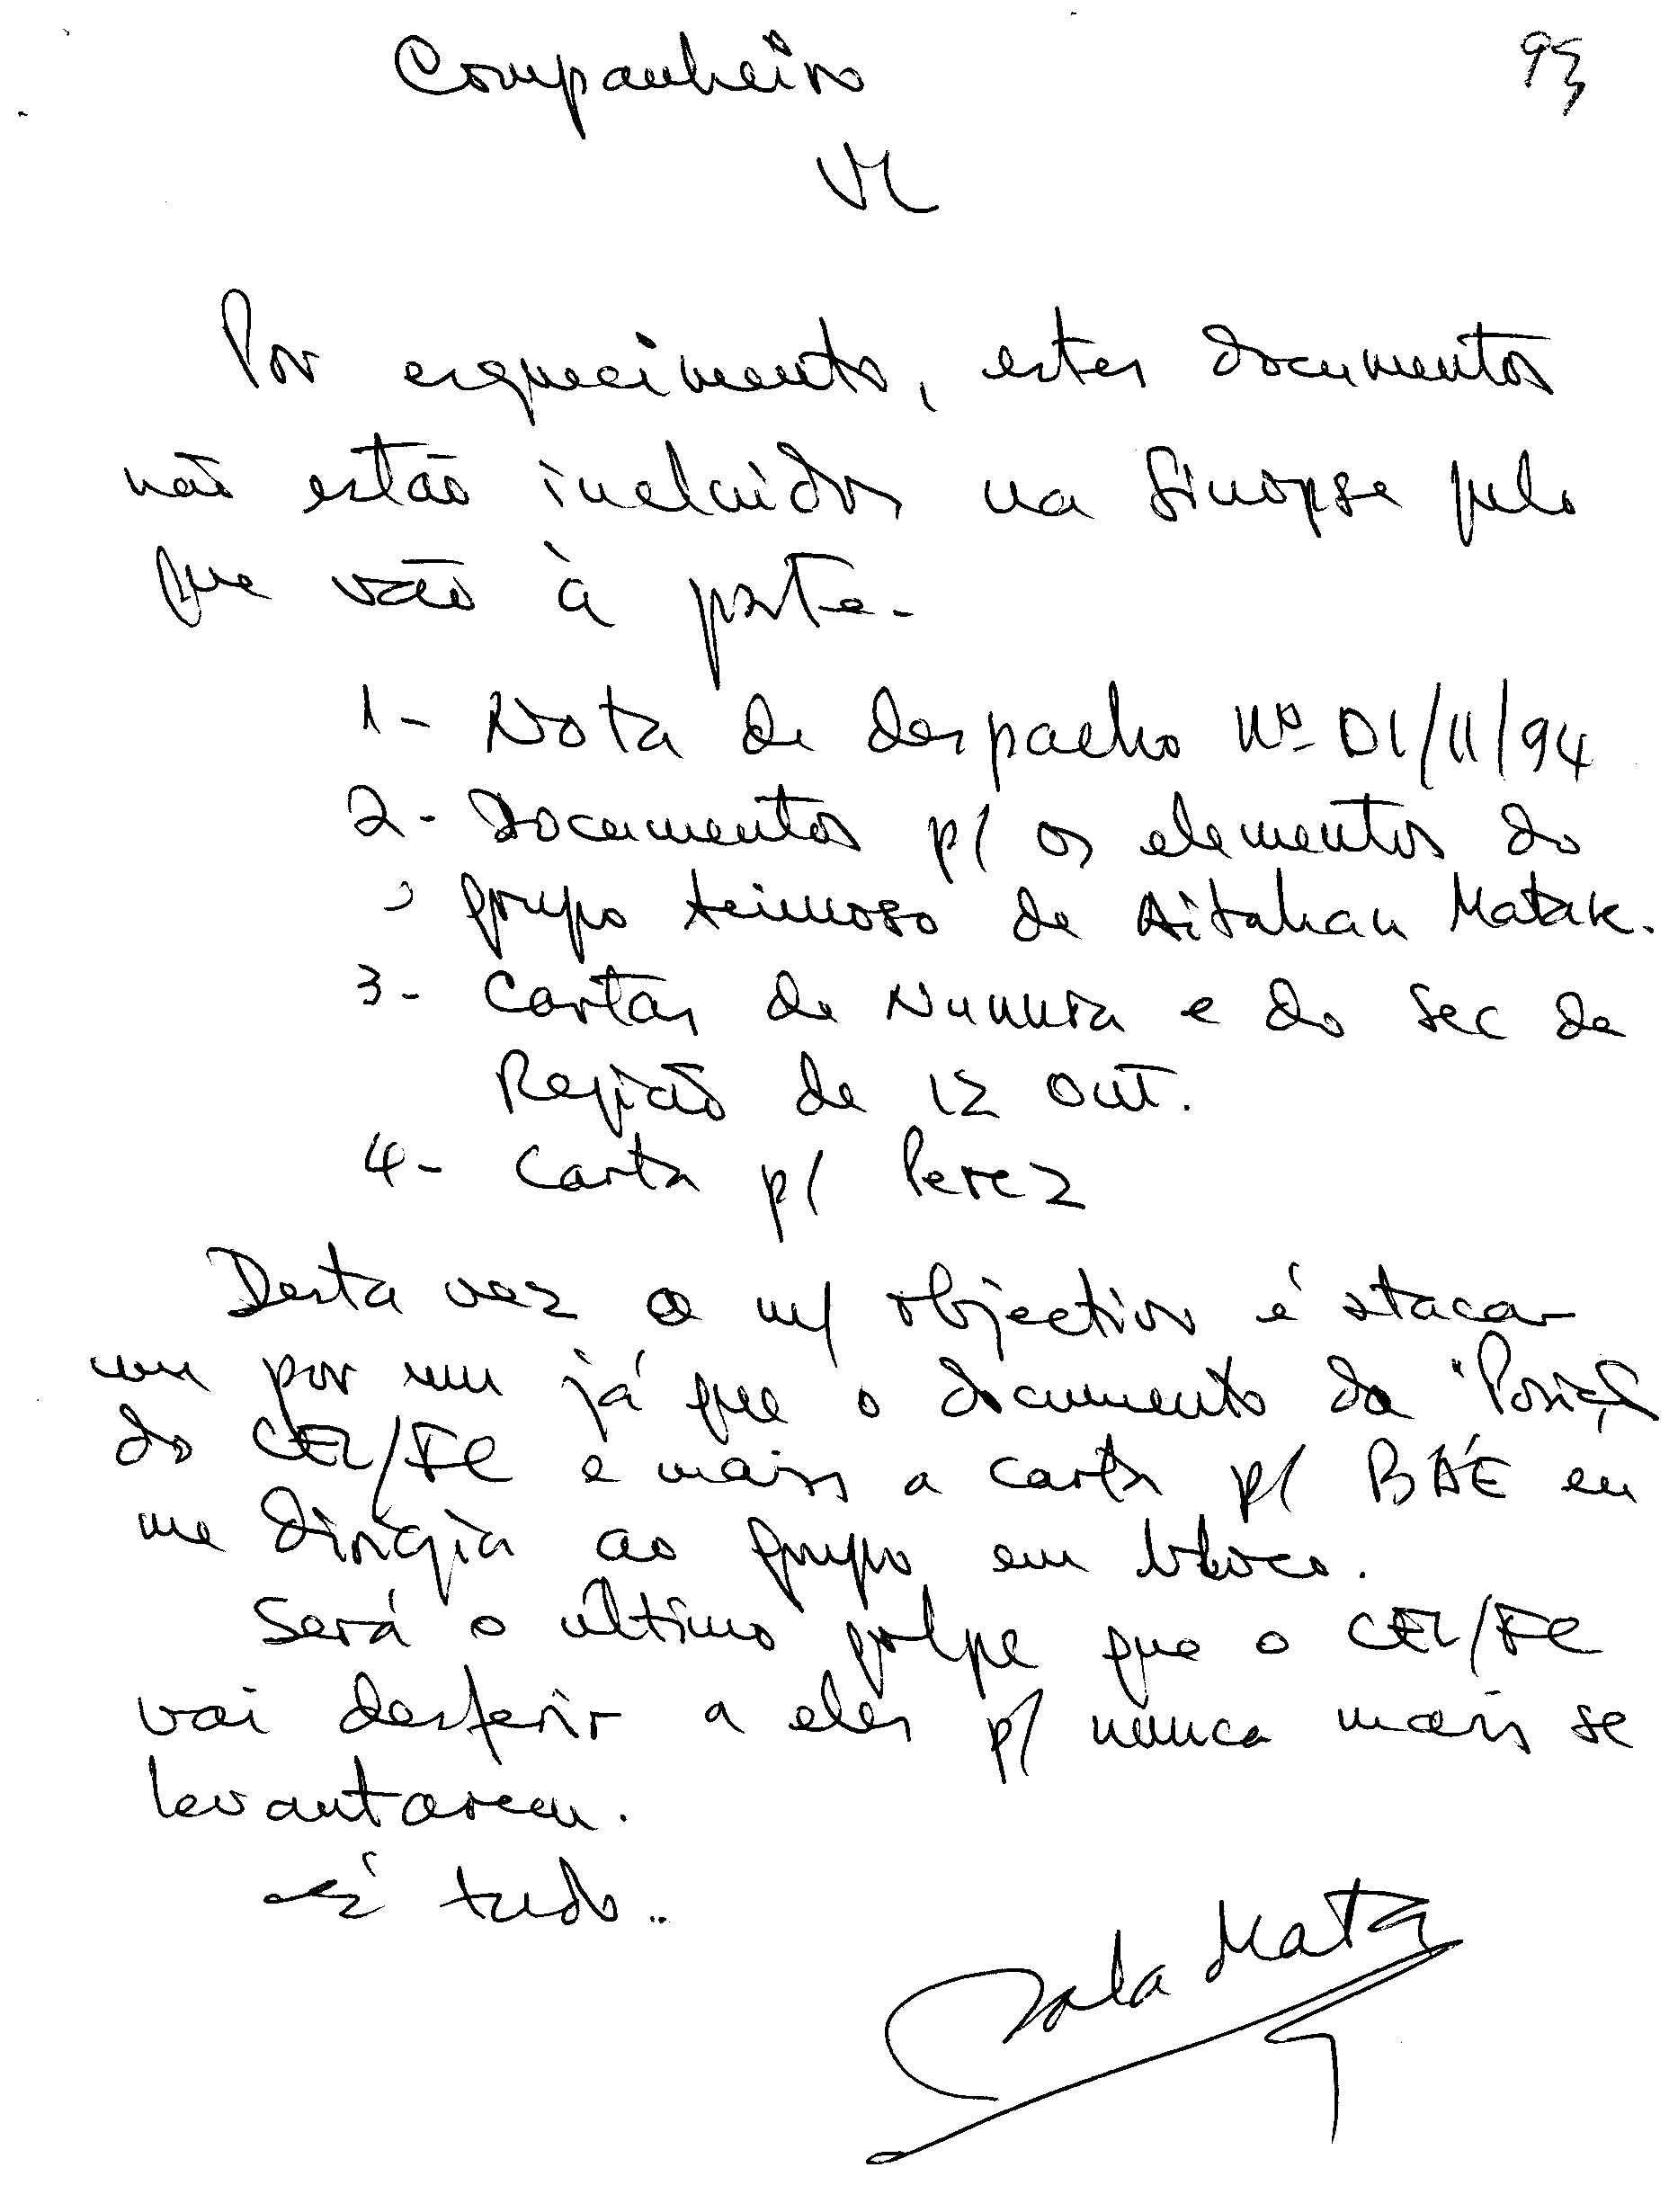 Companheiro
93
VL
Por esquecimento, estes documentos
não estão incluidos na Sinopse pelo
que vão à parte.
1- Nota de despacho Nº 01/11/94
2- Documentos p/ os elementos do
grupo teimoso de Aitahan Matak.
3- Cartas de Nunura e do Sec da
Região de 12 Out.
4- Carta p/ Perez
Desta vez o m/ objectivo é atacar
um por um já que o documento da "Posição
do CEL/FC e mais a carta p/ BÁE eu
me dirigia ao grupo em bloco.
Será o último golpe que o CEL/FC
vai desferir a eles p/ nunca mais se
levantarem.
É tudo..
Mata